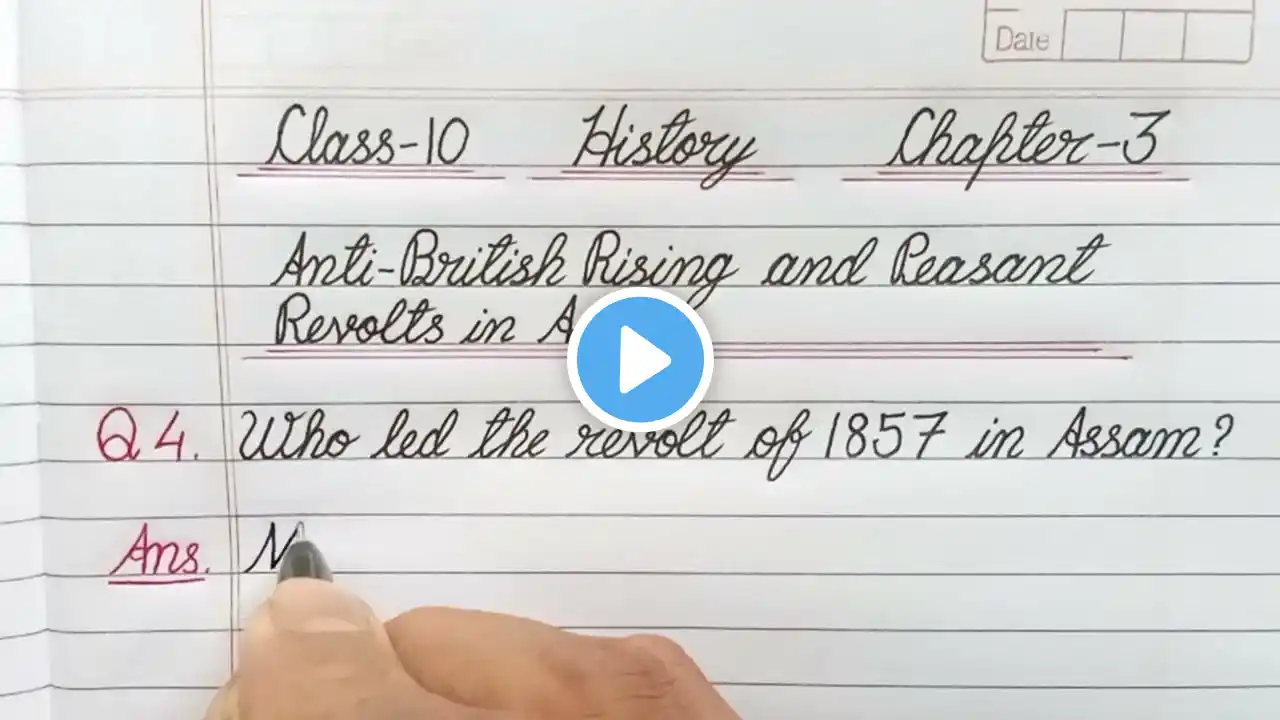 Date
Class-10 History Chapter-3
Anti-British Rising and Peasant
Revolts in
Q 4. Who led the revolt of 1857 in Assam?
Ans.